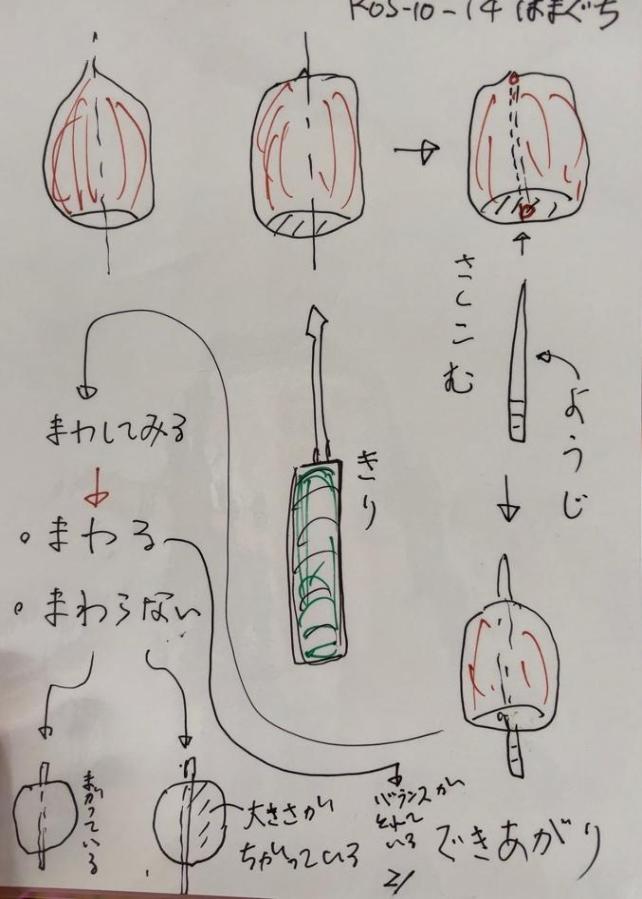 KOS-10-14 はまぐち
さしこむ
ようじ
きり
できあがり
まわしてみる
・まわる
・まわらない
まがっている
大きさが
ちがっている
バランスが
とれて
いる
21